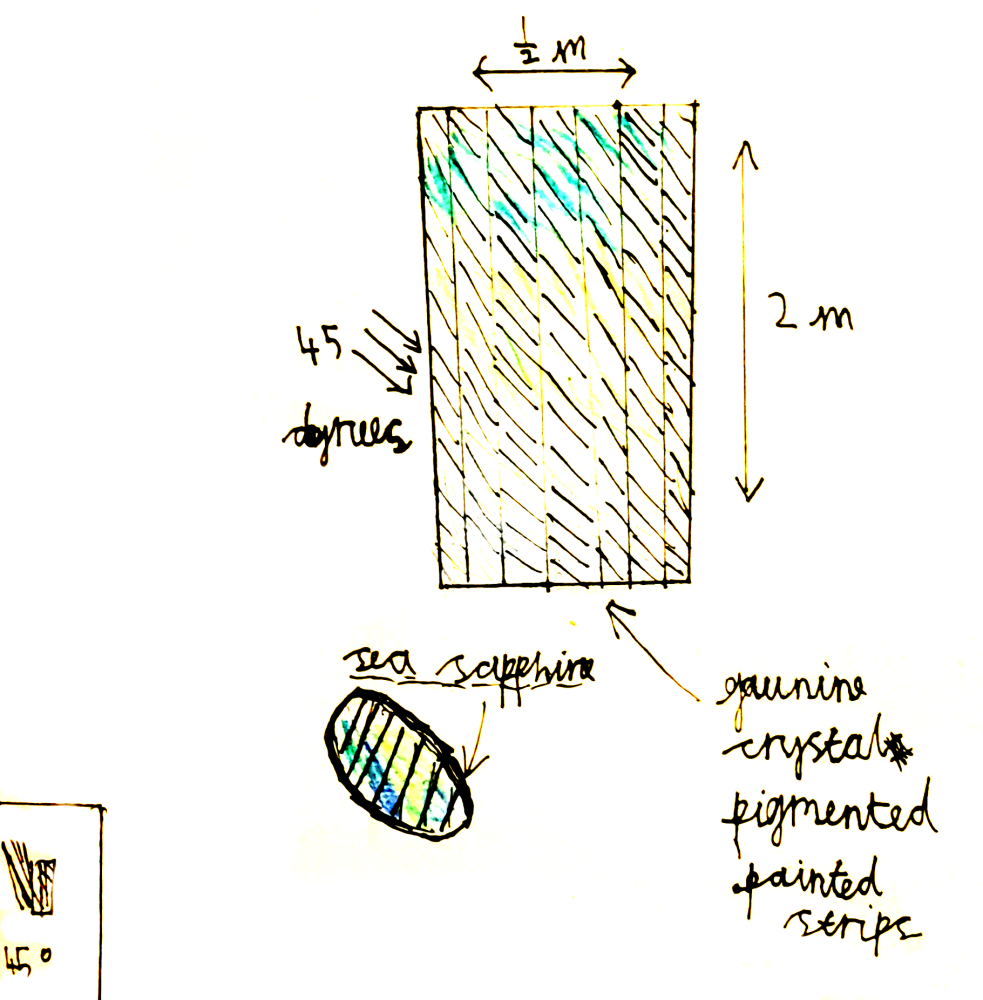 1/2 m
2 m
45
degrees
sea sapphire
gaunine
crystal
pigmented
painted
strips
45°